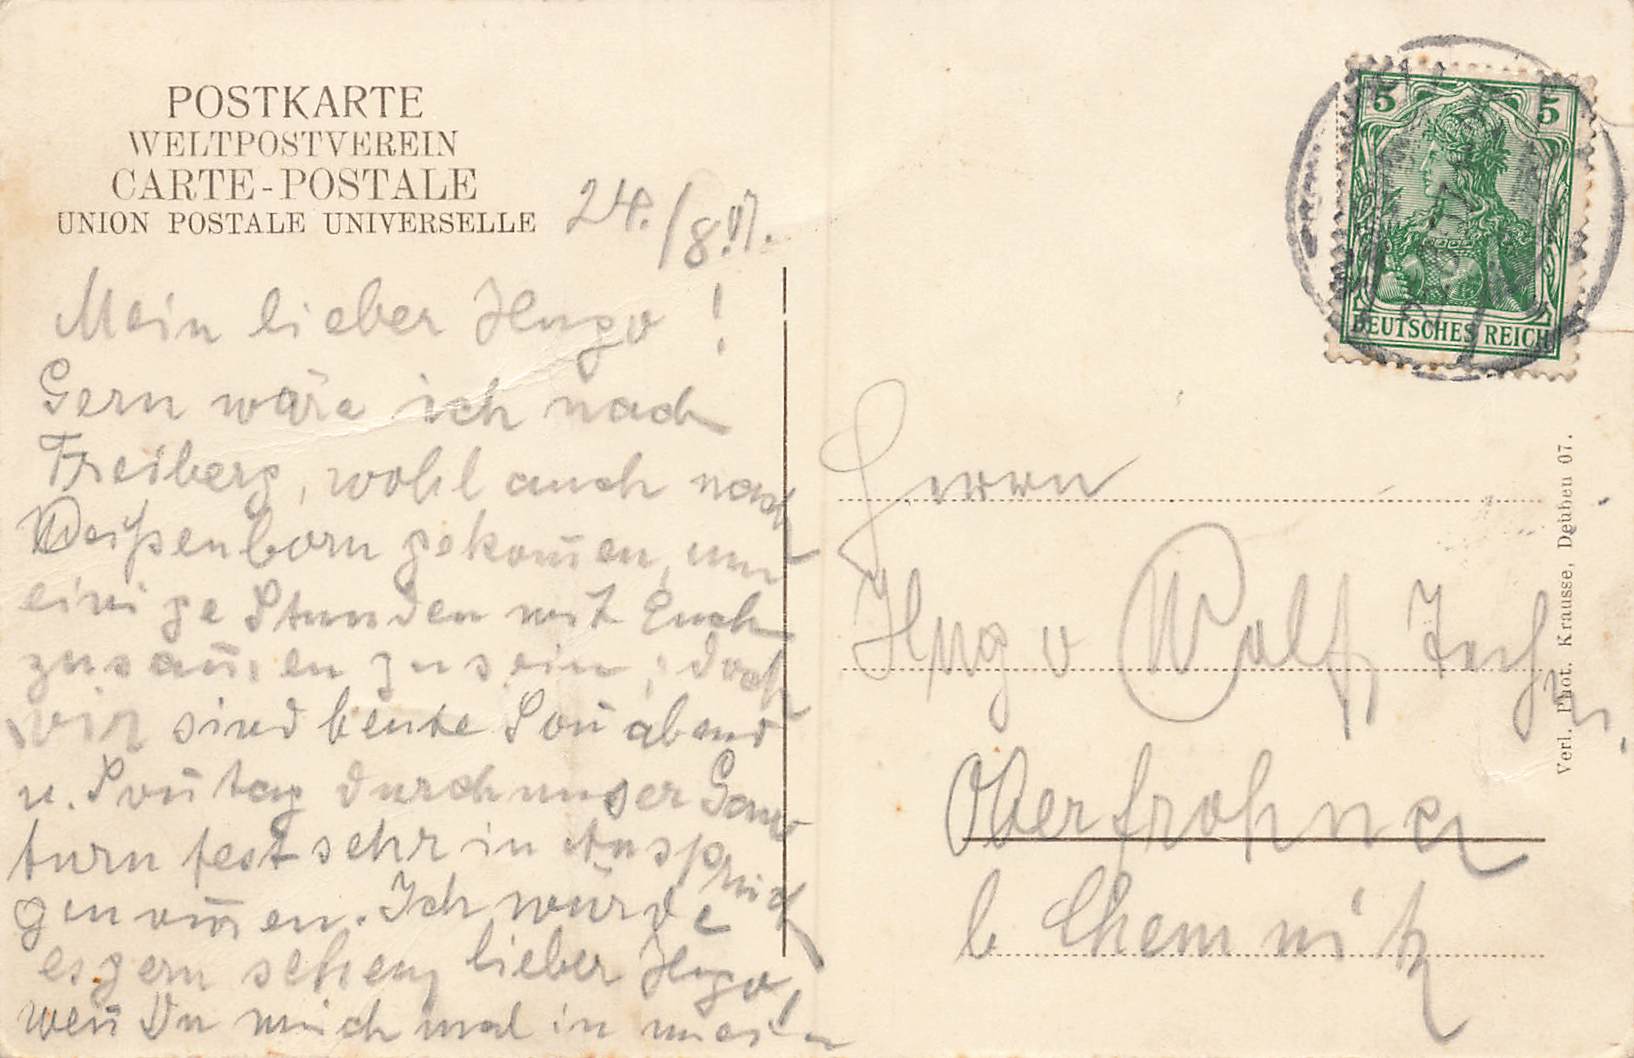 POSTKARTE
WELTPOSTVEREIN
CARTE-POSTALE
UNION POSTALE UNIVERSELLE
24./8.07.
Mein lieber Hugo!
Gern wäre ich nach
Freiberg, wohl auch nach
Weißenborn gekom̄en, um
einige Stunden mit Euch
zusam̄en zu sein; doch
wir sind heute Son̄abend
u. Son̄tag durch unser Gau-
turnfest sehr in Anspruch
genom̄en. Ich würde
es gern sehen, lieber Hugo,
wen̄ Du mich mal in
5 5
DEUTSCHES REICH
Herrn
Hugo Wolf
Oberfrohna
b Chemnitz
Verl. Phot. Krausse, Deuben 07.